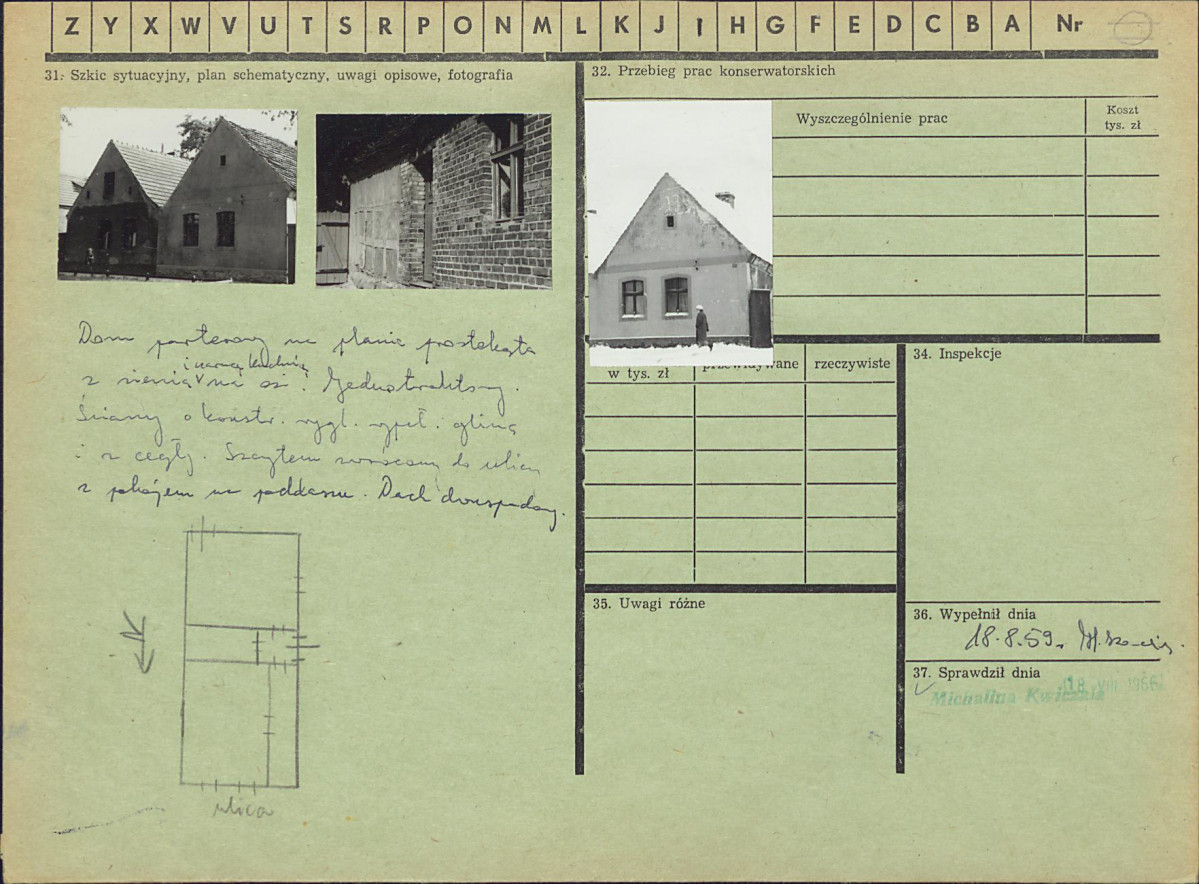 Z Y X W V U T S R P O N M L K J I H G F E D C B A Nr
31. Szkic sytuacyjny, plan schematyczny, uwagi opisowe, fotografia
Dom parterowy na planie prostokąta
i czarną kuchnią
z sienią na osi. Jednotraktowy.
Ściany o konstr. rygl. wypeł. gliną
i z cegły. Szczytem zwrócony do ulicy
z pokojem na poddaszu. Dach dwuspadowy.
ulica
32. Przebieg prac konserwatorskich
Wyszczególnienie prac
Koszt
tys. zł
w tys. zł
przewidywane
rzeczywiste
34. Inspekcje
35. Uwagi różne
36. Wypełnił dnia
18.8.59.
37. Sprawdził dnia
Michalina Kwiczala